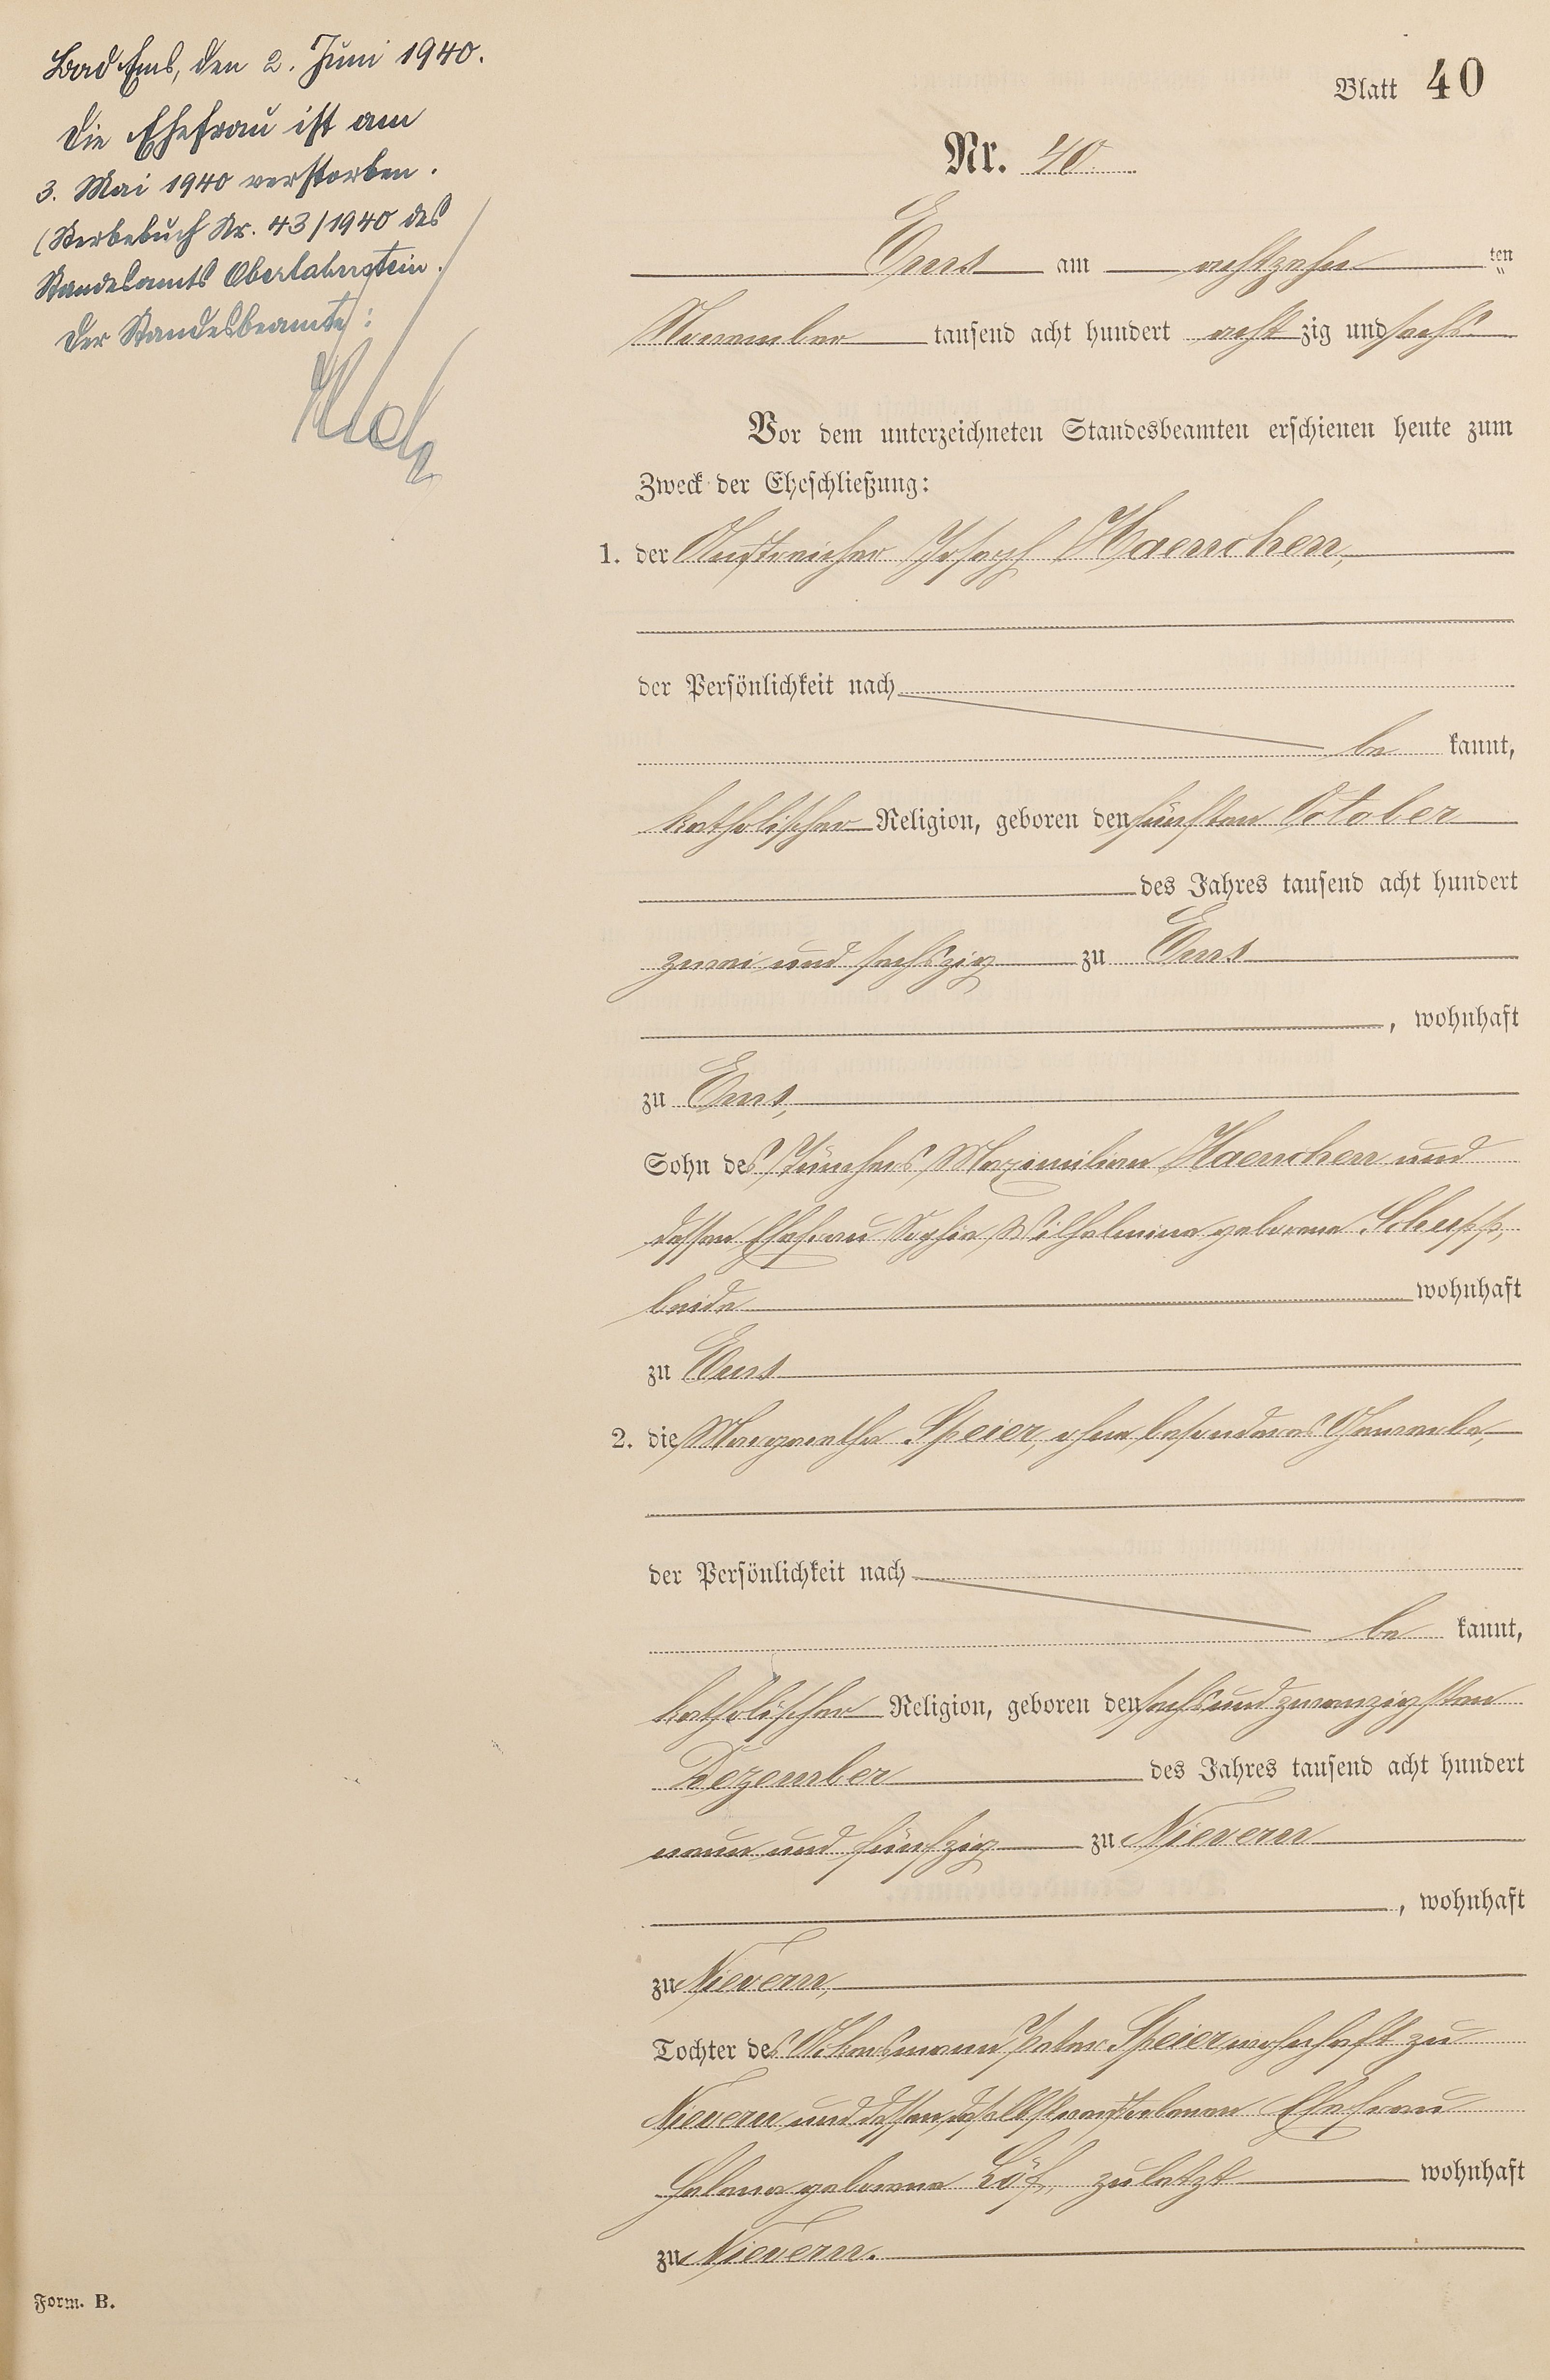 Bad Ems, den 2. Juni 1940.
Die Ehefrau ist am
3. Mai 1940 verstorben.
(Sterbebuch Nr. 43/1940 des
Standesamts Oberlahnstein.
Der Standesbeamte):
Blatt 40
Nr. 40.
Ems am achtzehn ten
November tausend acht hundert acht zig und sechs
Vor dem unterzeichneten Standesbeamten erschienen heute zum
Zweck der Eheschließung:
1. der Anstreicher Joseph Haenchen,
der Persönlichkeit nach
be kannt,
katholischer Religion, geboren den fünften October
des Jahres tausend acht hundert
zwei und sechszig zu Ems
, wohnhaft
zu Ems,
Sohn des Tünchers Maximilian Haenchen und
dessen Ehefrau Sophie Wilhelmine geborene Schupp,
beide wohnhaft
zu Ems
2. die Margaretha Speier, ohne besonderes Gewerbe,
der Persönlichkeit nach
be kannt,
katholischer Religion, geboren den sechsundzwanzigsten
Dezember des Jahres tausend acht hundert
neun und fünfzig zu Nievern
, wohnhaft
zu Nievern,
Tochter des Ackersmann Peter Speier wohnhaft zu
Nievern und dessen daselbst verstorbenen Ehefrau
Helena geborene Löf, zuletzt wohnhaft
zu Nievern.
Form. B.